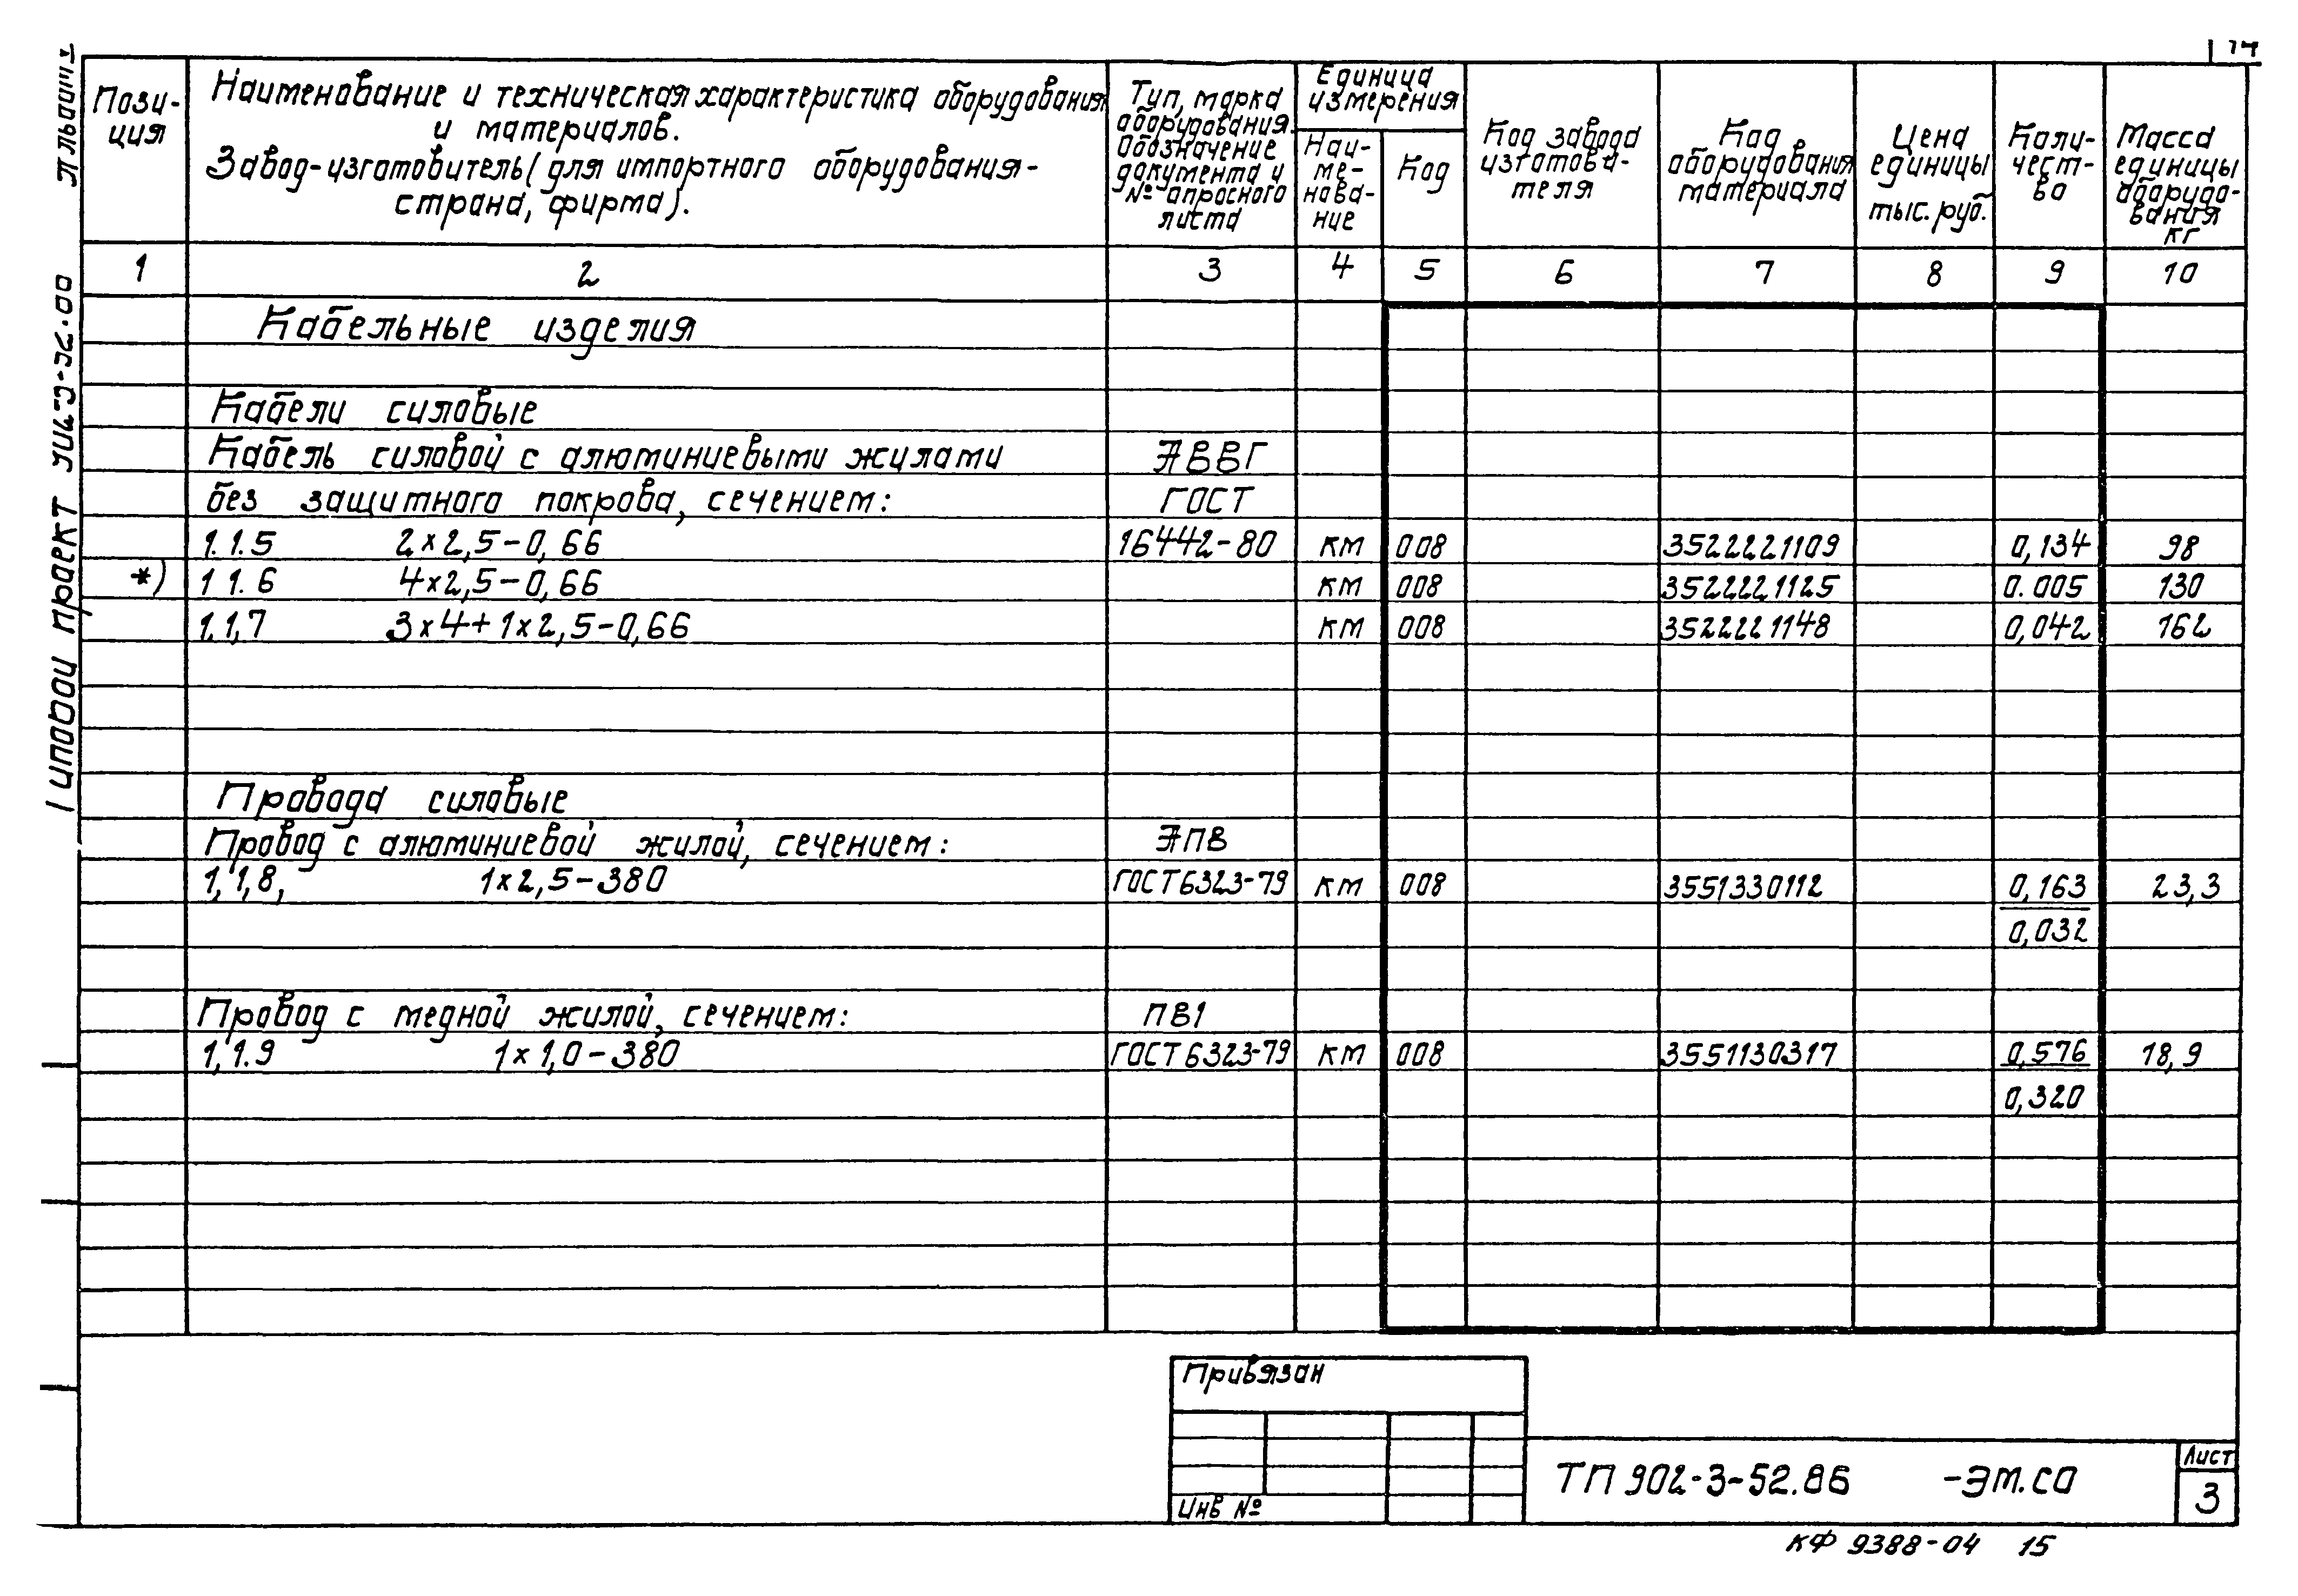 14
Пози-
ция
Наименование и техническая характеристика оборудования
и материалов.
Завод-изготовитель (для импортного оборудования-
страна, фирма).
Тип, марка
оборудования.
Обозначение
документа и
№ опросного
листа
Единица
измерения
Наи-
ме-
нова-
ние
Код
Код завода
изготови-
теля
Код
оборудования
материала
Цена
единицы
тыс. руб.
Коли-
чест-
во
Масса
единицы
оборудо-
вания
кг
1 2 3 4 5 6 7 8 9 10
Кабельные изделия
Кабели силовые
Кабель силовой с алюминиевыми жилами АВВГ
без защитного покрова, сечением: ГОСТ
1.1.5 2×2,5-0,66 16442-80 км 008 3522221109 0,134 98
*) 1.1.6 4×2,5-0,66 км 008 3522221125 0.005 130
1.1,7 3×4+1×2,5-0,66 км 008 3522221148 0,042 162
Провода силовые
Провод с алюминиевой жилой, сечением: АПВ
1,1,8, 1×2,5-380 ГОСТ 6323-79 км 008 3551330112 0,163 23,3
0,032
Провод с медной жилой, сечением: ПВ1
1,1.9 1×1,0-380 ГОСТ 6323-79 км 008 3551130317 0,576 18,9
0,320
Привязан
Инв №
ТП 902-3-52.86 -ЭМ.СО
Лист
3
КФ 9388-04 15
Типовой проект
Альбом